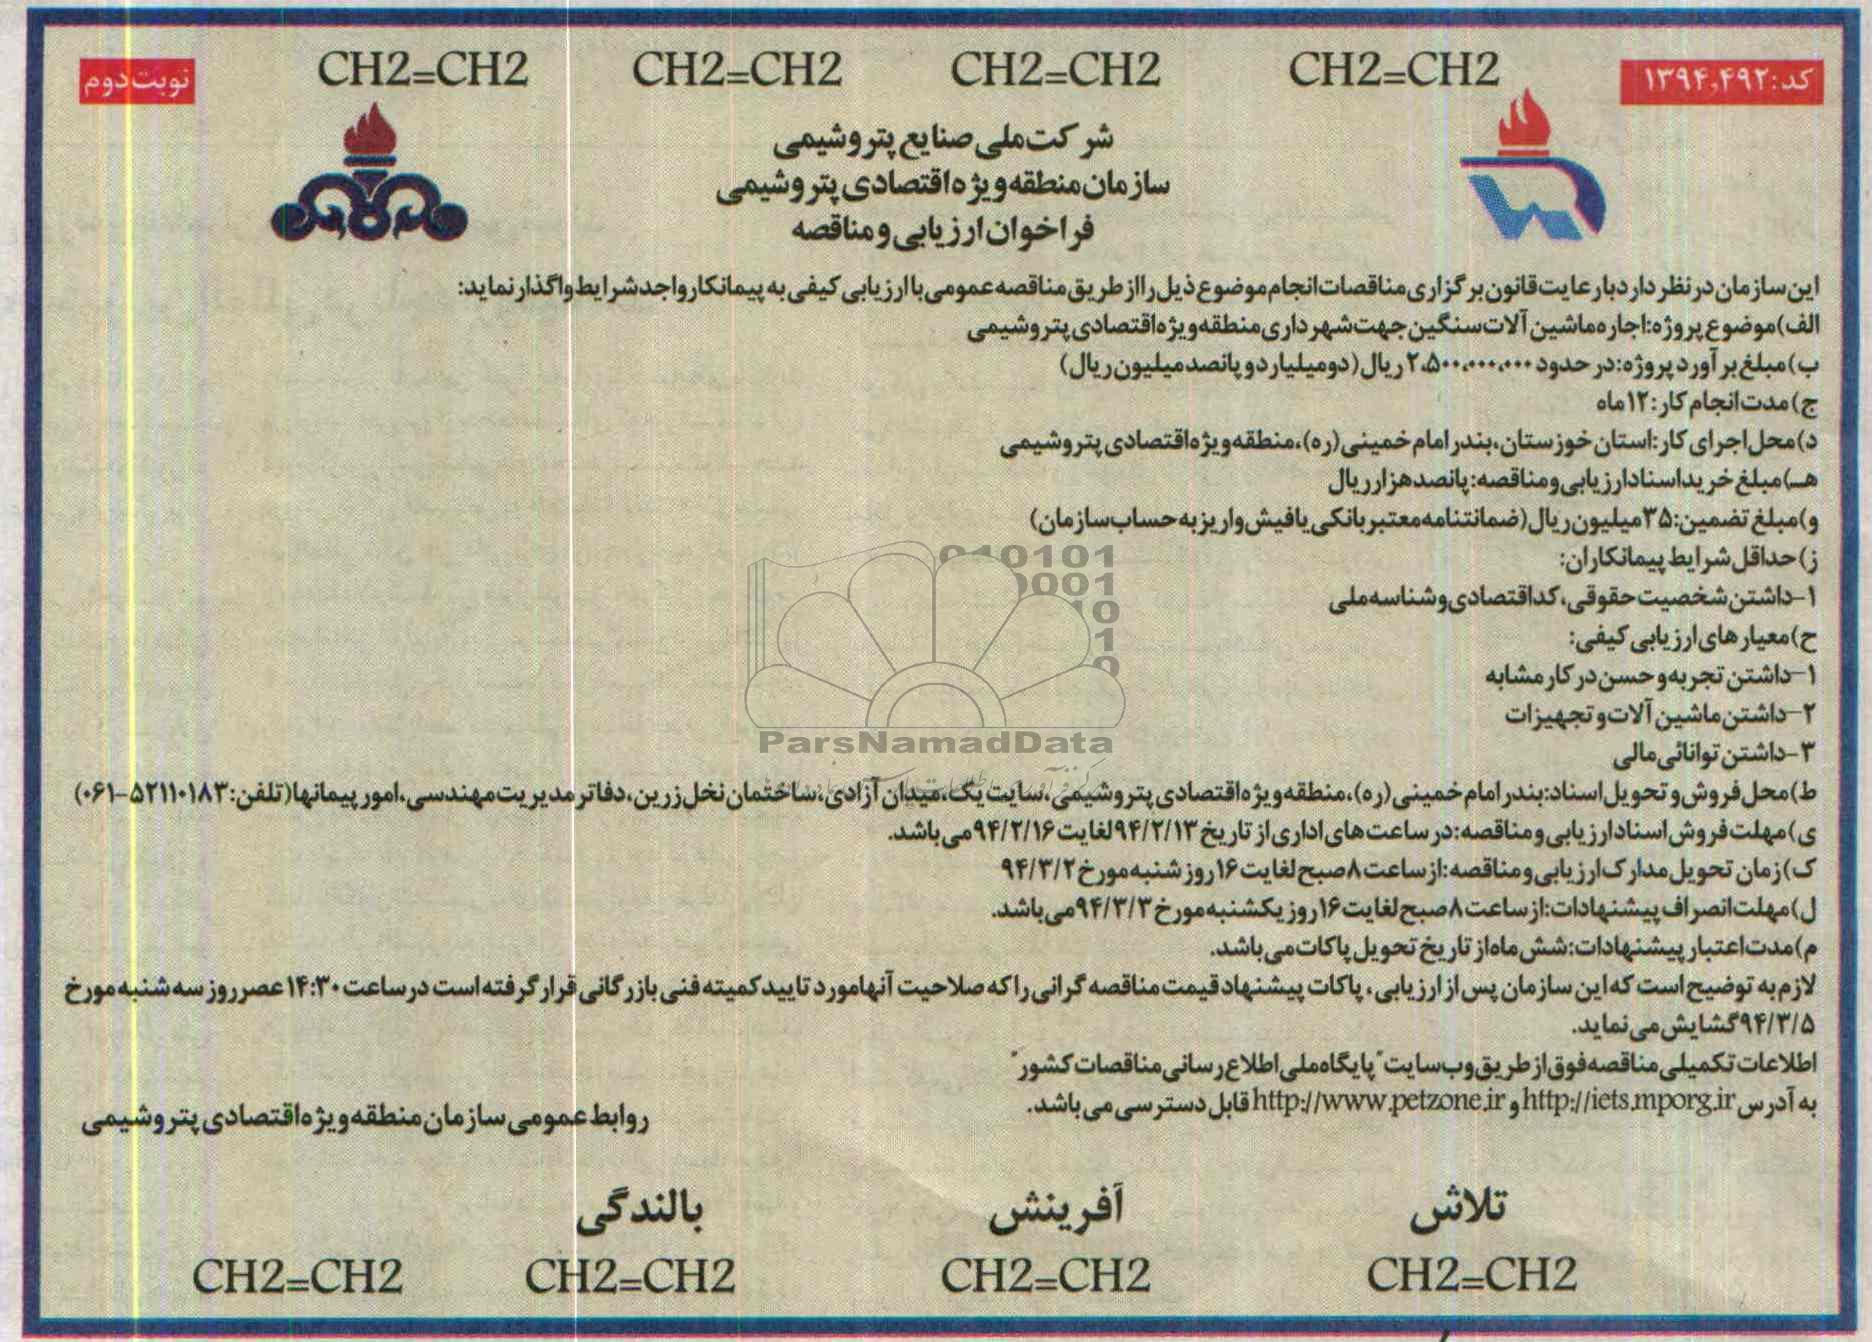 CH2=CH2 CH2=CH2 CH2=CH2 CH2=CH2
کد: ۱۳۹۴,۴۹۲
نوبت دوم
شرکت ملی صنایع پتروشیمی
سازمان منطقه ویژه اقتصادی پتروشیمی
فراخوان ارزیابی و مناقصه
این سازمان در نظر دارد با رعایت قانون برگزاری مناقصات انجام موضوع ذیل را از طریق مناقصه عمومی با ارزیابی کیفی به پیمانکار واجد شرایط واگذار نماید:
الف) موضوع پروژه: اجاره ماشین آلات سنگین جهت شهرداری منطقه ویژه اقتصادی پتروشیمی
ب) مبلغ برآورد پروژه: در حدود ۲،۵۰۰،۰۰۰،۰۰۰ ریال (دو میلیارد و پانصد میلیون ریال)
ج) مدت انجام کار: ۱۲ ماه
د) محل اجرای کار: استان خوزستان، بندر امام خمینی (ره)، منطقه ویژه اقتصادی پتروشیمی
هـ) مبلغ خرید اسناد ارزیابی و مناقصه: پانصد هزار ریال
و) مبلغ تضمین: ۳۵ میلیون ریال (ضمانتنامه معتبر بانکی یا فیش واریز به حساب سازمان)
ز) حداقل شرایط پیمانکاران:
۱- داشتن شخصیت حقوقی، کد اقتصادی و شناسه ملی
ح) معیارهای ارزیابی کیفی:
۱- داشتن تجربه و حسن در کار مشابه
۲- داشتن ماشین آلات و تجهیزات
۳- داشتن توانائی مالی
ParsNamadData
ط) محل فروش و تحویل اسناد: بندر امام خمینی (ره)، منطقه ویژه اقتصادی پتروشیمی، سایت یک، میدان آزادی، ساختمان نخل زرین، دفاتر مدیریت مهندسی، امور پیمانها (تلفن: ۵۲۱۱۰۱۸۳-۰۶۱)
ی) مهلت فروش اسناد ارزیابی و مناقصه: در ساعت های اداری از تاریخ ۹۴/۲/۱۳ لغایت ۹۴/۲/۱۶ می باشد.
ک) زمان تحویل مدارک ارزیابی و مناقصه: از ساعت ۸ صبح لغایت ۱۶ روز شنبه مورخ ۹۴/۳/۲
ل) مهلت انصراف پیشنهادات: از ساعت ۸ صبح لغایت ۱۶ روز یکشنبه مورخ ۹۴/۳/۳ می باشد.
م) مدت اعتبار پیشنهادات: شش ماه از تاریخ تحویل پاکات می باشد.
لازم به توضیح است که این سازمان پس از ارزیابی، پاکات پیشنهاد قیمت مناقصه گرانی را که صلاحیت آنها مورد تایید کمیته فنی بازرگانی قرار گرفته است در ساعت ۱۴:۳۰ عصر روز سه شنبه مورخ
۹۴/۳/۵ گشایش می نماید.
اطلاعات تکمیلی مناقصه فوق از طریق وب سایت "پایگاه ملی اطلاع رسانی مناقصات کشور"
به آدرس http://iets.mporg.ir و http://www.petzone.ir قابل دسترسی می باشد.
روابط عمومی سازمان منطقه ویژه اقتصادی پتروشیمی
تلاش آفرینش بالندگی
CH2=CH2 CH2=CH2 CH2=CH2 CH2=CH2